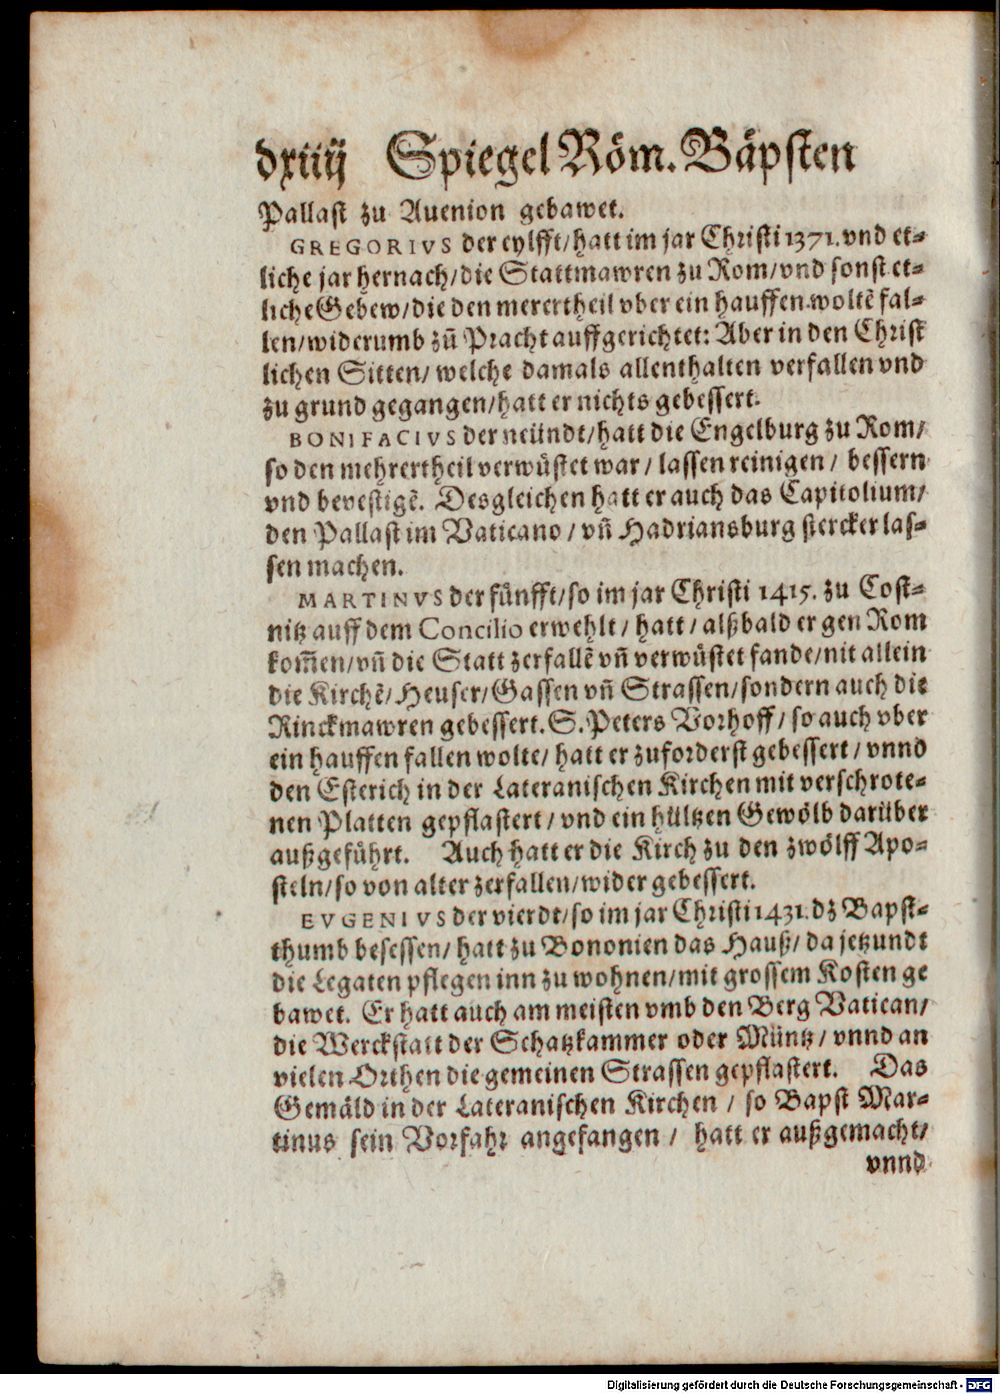 dxiiij Spiegel Röm. Bäpsten
Pallast zu Auenion gebawet.
GREGORIVS der eylfft/hatt im jar Christi 1371. vnd et⸗
liche jar hernach/die Stattmawren zu Rom/vnd sonst et⸗
liche Gebew/die den merertheil vber ein hauffen woltẽ fal⸗
len/widerumb zũ Pracht auffgerichtet: Aber in den Christ
lichen Sitten/ welche damals allenthalten verfallen vnd
zu grund gegangen/hatt er nichts gebessert.
BONIFACIVS der neündt/hatt die Engelburg zu Rom/
so den mehrertheil verwüstet war / lassen reinigen / bessern
vnd bevestigẽ. Desgleichen hatt er auch das Capitolium/
den Pallast im Vaticano / vñ Hadriansburg stercker las⸗
sen machen.
MARTINVS der fünfft/so im jar Christi 1415. zu Cost⸗
nitz auff dem Concilio erwehlt / hatt / alßbald er gen Rom
kom̃en/vñ die Statt zerfallẽ vñ verwüstet fande/nit allein
die Kirchẽ/Heuser/Gassen vñ Strassen/sondern auch die
Rinckmawren gebessert. S. Peters Vorhoff/ so auch vber
ein hauffen fallen wolte/ hatt er zuforderst gebessert / vnnd
den Esterich in der Lateranischen Kirchen mit verschrote⸗
nen Platten gepflastert / vnd ein hültzen Gewölb darüber
außgeführt. Auch hatt er die Kirch zu den zwölff Apo⸗
steln/so von alter zerfallen/wider gebessert.
EVGENIVS der vierdt/so im jar Christi 1431. dz Bapst⸗
thumb besessen/ hatt zu Bononien das Hauß/ da jetzundt
die Legaten pflegen inn zu wohnen/mit grossem Kosten ge
bawet. Er hatt auch am meisten vmb den Berg Vatican/
die Werckstatt der Schatzkammer oder Müntz / vnnd an
vielen Orthen die gemeinen Strassen gepflastert. Das
Gemäld in der Lateranischen Kirchen / so Bapst Mar⸗
tinus sein Vorfahr angefangen / hatt er außgemacht/
vnnd
Digitalisierung gefördert durch die Deutsche Forschungsgemeinschaft - DFG